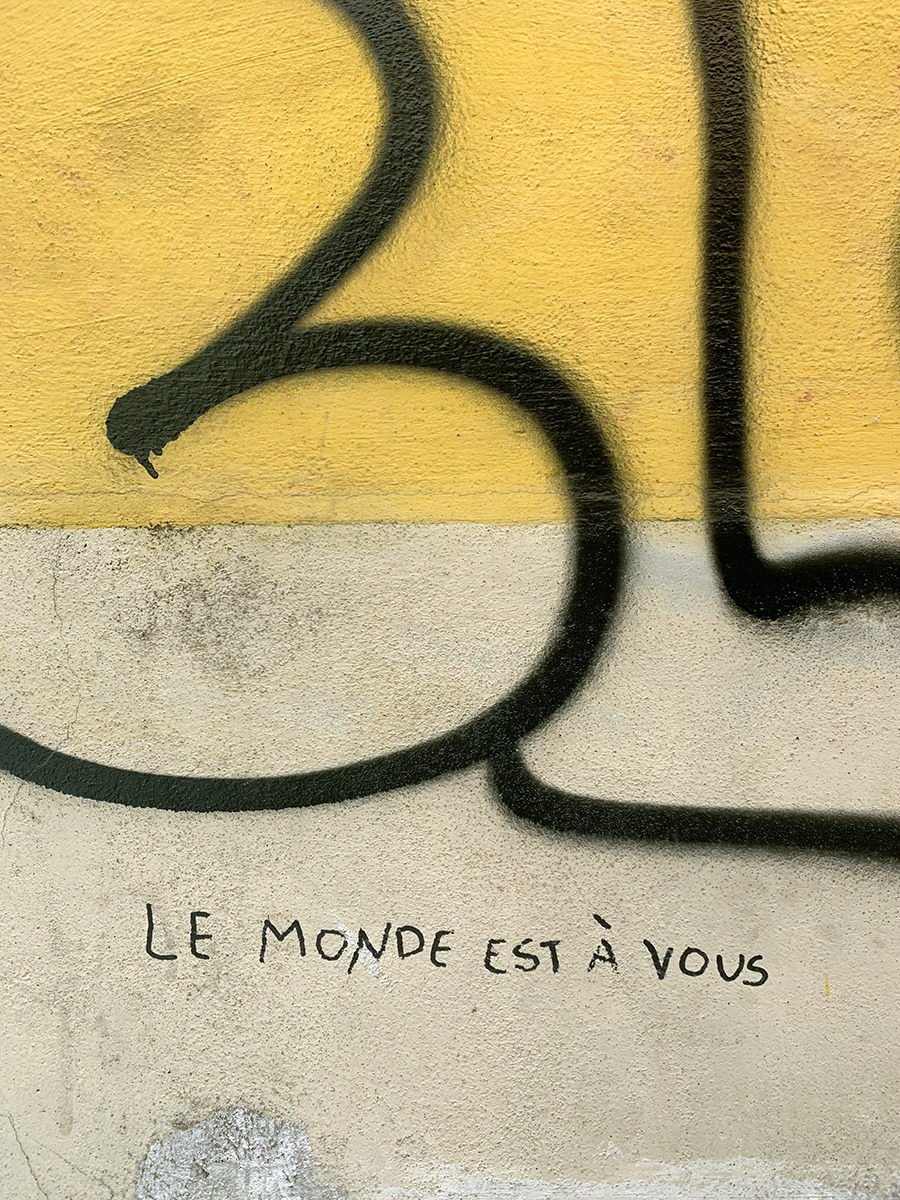 LE MONDE EST À VOUS